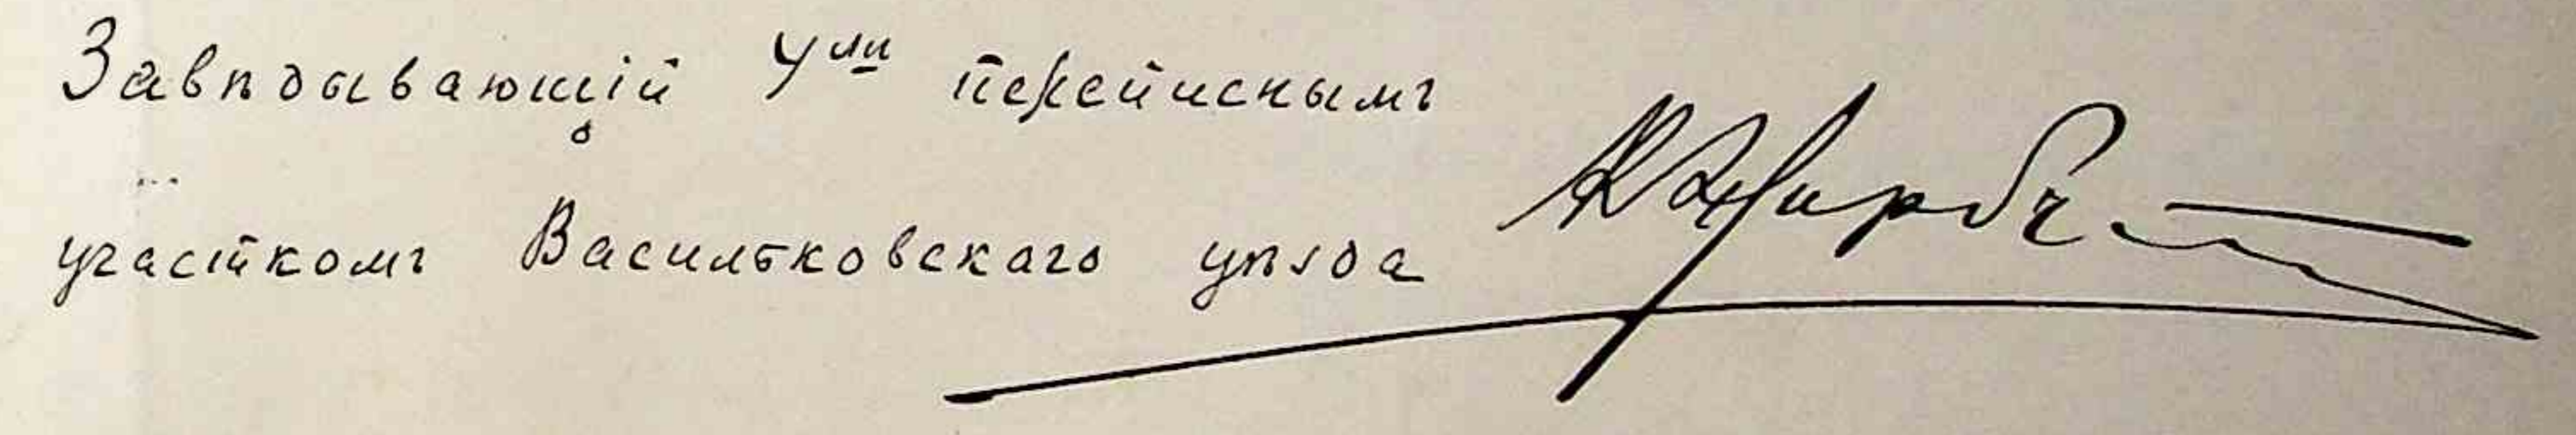 Завѣдывающій 4ымъ переписнымъ
участкомъ Васильковскаго уѣзда